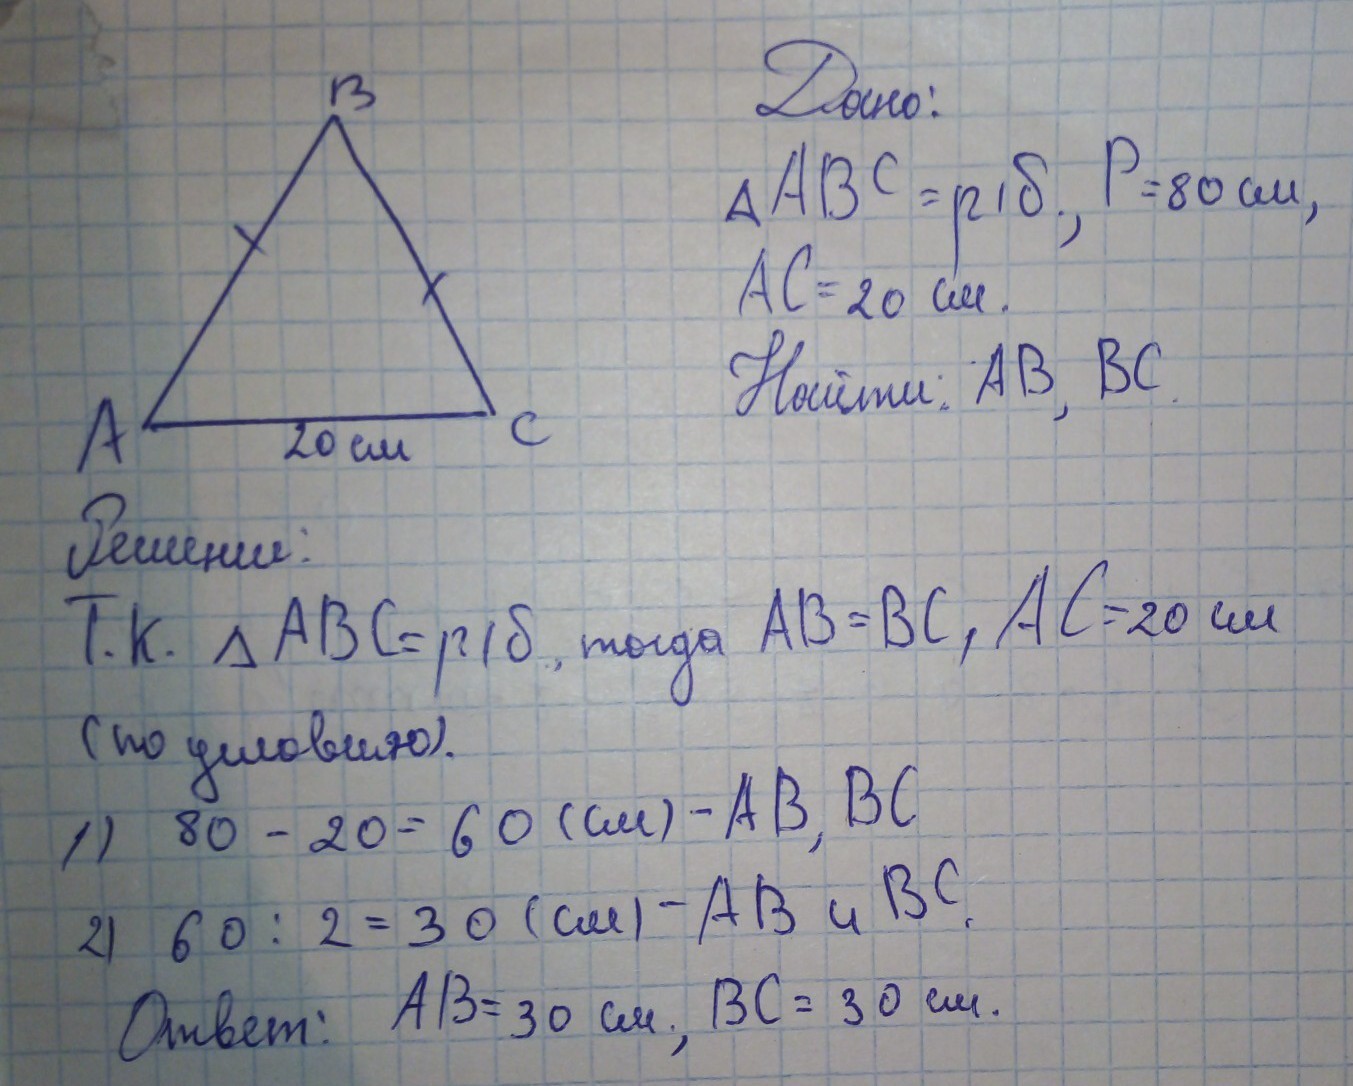 B
A
C
20 см
Дано:
△ ABC = р/б., P = 80 см,
AC = 20 см.
Найти: AB, BC.
Решение:
Т.к. △ ABC = р/б., тогда AB = BC, AC = 20 см
(по условию).
1) 80 - 20 = 60 (см) - AB, BC
2) 60 : 2 = 30 (см) - AB и BC.
Ответ: AB = 30 см., BC = 30 см.